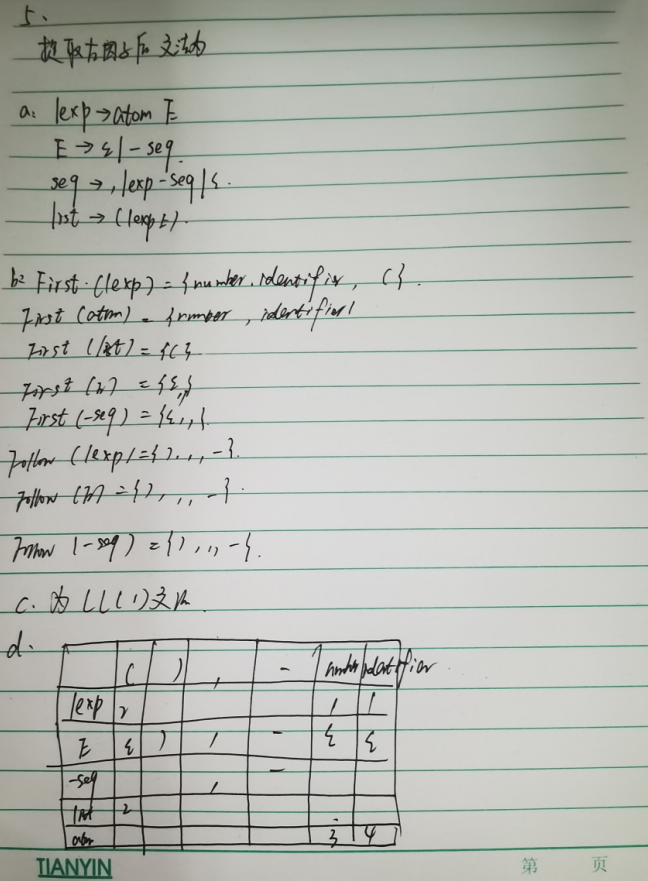 5、
提取左因子后文法为
a: lexp→atom E
E→ε|-seq.
seq→,lexp-seq|ε.
list→(lexp E).
b: First(lexp)={number,identifier, (}.
First(atom)={number, identifier}
First(list)={(}
First ={ε,,}
First(-seq)={ε,,}.
Follow(lexp)={),,,-}.
Follow ={),,,-}.
Follow(-seq)={),,,-}.
c. 为LL(1)文法.
d.
( ) , - number identifier
lexp 2 1 1
E ε ) , - ε ε
-seq , -
list 2
atom 3 4
TIANYIN 第 页